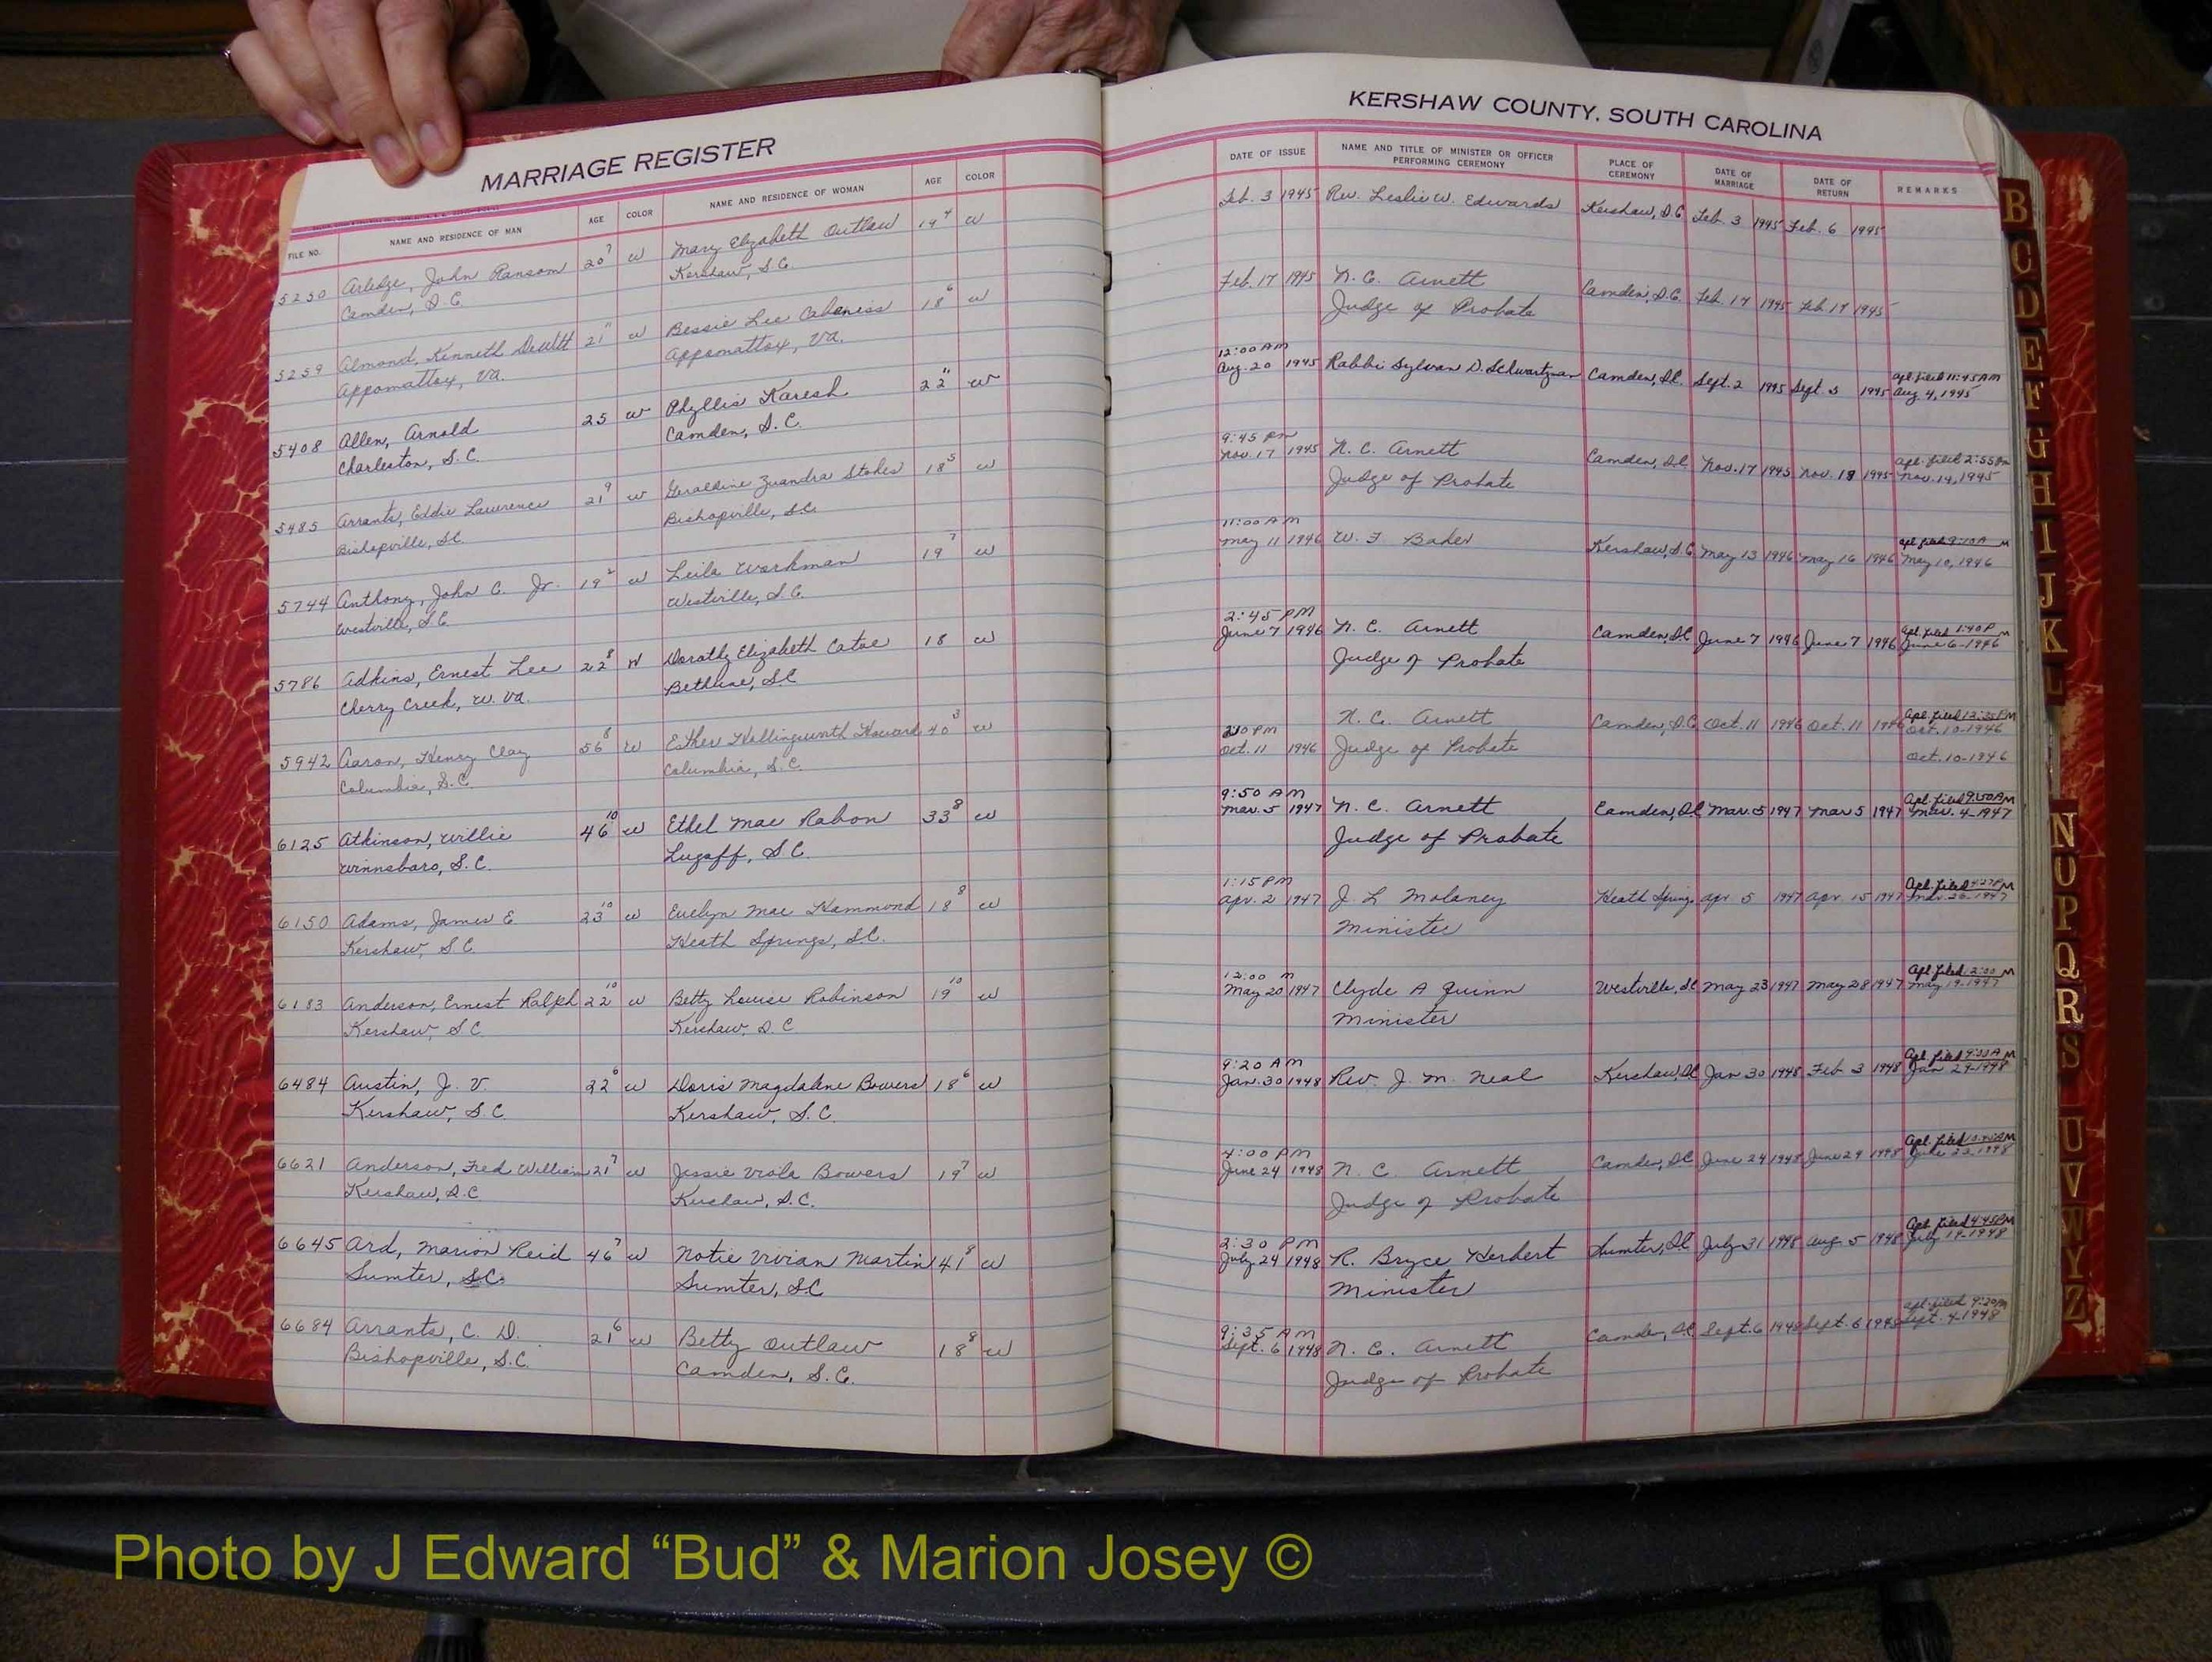 MARRIAGE REGISTER
FILE NO. NAME AND RESIDENCE OF MAN AGE COLOR NAME AND RESIDENCE OF WOMAN AGE COLOR
5250 Arledge, John Ransom 20 7 w Mary Elizabeth Outlaw 19 4 w
Camden, S.C. Kershaw, S.C.
5259 Almond, Kenneth DeWitt 21 11 w Bessie Lee 18 6 w
Appomattox, Va. Appomattox, Va.
5408 Allen, Arnold 25 w Phyllis Karesh 22 11 w
Charleston, S.C. Camden, S.C.
5485 Arrants, Eddie Lawrence 21 9 w Geraldine Zuandra Stokes 18 5 w
Bishopville, S.C. Bishopville, S.C.
5744 Anthony, John C. Jr. 19 2 w Leila Workman 19 7 w
Westville, S.C. Westville, S.C.
5786 Adkins, Ernest Lee 22 8 W Dorothy Elizabeth Catoe 18 w
Cherry Creek, W. Va. Bethune, S.C.
5942 Aaron, Henry Clay 56 8 w Esther Hollingsworth Howard 40 3 w
Columbia, S.C. Columbia, S.C.
6125 Atkinson, Willie 46 10 w Ethel Mae Rabon 33 8 w
Winnsboro, S.C. Lugoff, S.C.
6150 Adams, James E 23 10 w Evelyn Mae Hammond 18 8 w
Kershaw, S.C. Heath Springs, S.C.
6183 Anderson, Ernest Ralph 22 10 w Betty Louise Robinson 19 10 w
Kershaw, S.C Kershaw, S.C
6484 Austin, J. V. 22 6 w Doris Magdalene Bowers 18 6 w
Kershaw, S.C Kershaw, S.C.
6621 Anderson, Fred William 21 7 w Jessie Viola Bowers 19 7 w
Kershaw, S.C Kershaw, S.C.
6645 Ard, Marion Reid 46 7 w Notie Vivian Martin 41 8 w
Sumter, S.C. Sumter, S.C
6684 Arrants, C. D. 21 6 w Betty Outlaw 18 8 w
Bishopville, S.C. Camden, S.C.
KERSHAW COUNTY, SOUTH CAROLINA
DATE OF ISSUE NAME AND TITLE OF MINISTER OR OFFICER PERFORMING CEREMONY PLACE OF CEREMONY DATE OF MARRIAGE DATE OF RETURN REMARKS
Feb. 3 1945 Rev. Leslie W. Edwards Kershaw, S.C. Feb. 3 1945 Feb. 6 1945
Feb. 17 1945 N. C. Arnett Camden, S.C. Feb. 17 1945 Feb 17 1945
Judge of Probate
12:00 AM apl. filed 11:45 AM
Aug. 20 1945 Rabbi Sylvan D. Schwartzman Camden, S.C. Sept. 2 1945 Sept. 3 1945 Aug 4, 1945
9:45 PM apl. filed 2:55 Pm
Nov. 17 1945 N. C. Arnett Camden, S.C Nov. 17 1945 Nov. 19 1945 Nov. 14, 1945
Judge of Probate
11:00 AM apl. filed 9:10 A M
May 11 1946 W. F Baker Kershaw, S.C May 13 1946 May 16 1946 May 10, 1946
2:45 PM apl. filed 1:40 P M
June 7 1946 N. C. Arnett Camden, S.C June 7 1946 June 7 1946 June 6-1946
Judge of Probate
N. C. Arnett Camden, S.C. Oct. 11 1946 Oct. 11 1946 apl. filed PM
Oct. 10-1946
Oct. 11 1946 Judge of Probate Oct. 10-1946
9:50 AM apl. filed 9:50 AM
Mar. 5 1947 N. C. Arnett Camden, S.C Mar. 5 1947 Mar 5 1947 Mar. 4-1947
Judge of Probate
1:15 PM apl. filed 4:27 PM
Apr. 2 1947 J. L Molaney Heath Springs Apr. 5 1947 Apr. 15 1947 Mar. 26-1947
Minister
12:00 M apl. filed 12:00 M
May 20 1947 Clyde A Quinn Westville, S.C May 23 1947 May 28 1947 May 19-1947
Minister
9:20 AM apl. filed AM
Jan. 30 1948 Rev. J. M. Neal Kershaw, S.C Jan 30 1948 Feb 3 1948 Jan 29-1948
4:00 PM apl. filed AM
June 24 1948 N. C. Arnett Camden, S.C June 24 1948 June 29 1948 1948
Judge of Probate
2:30 PM apl. filed 4:45 PM
July 24 1948 R. Bryce Herbert Sumter, S.C July 31 1948 Aug. 5 1948 July 19-1948
Minister
9:35 AM apl. filed 9:20
Sept. 6 1948 N. C. Arnett Camden, S.C Sept. 6 1948 Sept. 6 1948 Sept. 4-1948
Judge of Probate
B
C
D
E
F
G
H
I
J
K
L
N
O
P
Q
R
S
U
V
W
Y
Z
Photo by J Edward “Bud” & Marion Josey ©